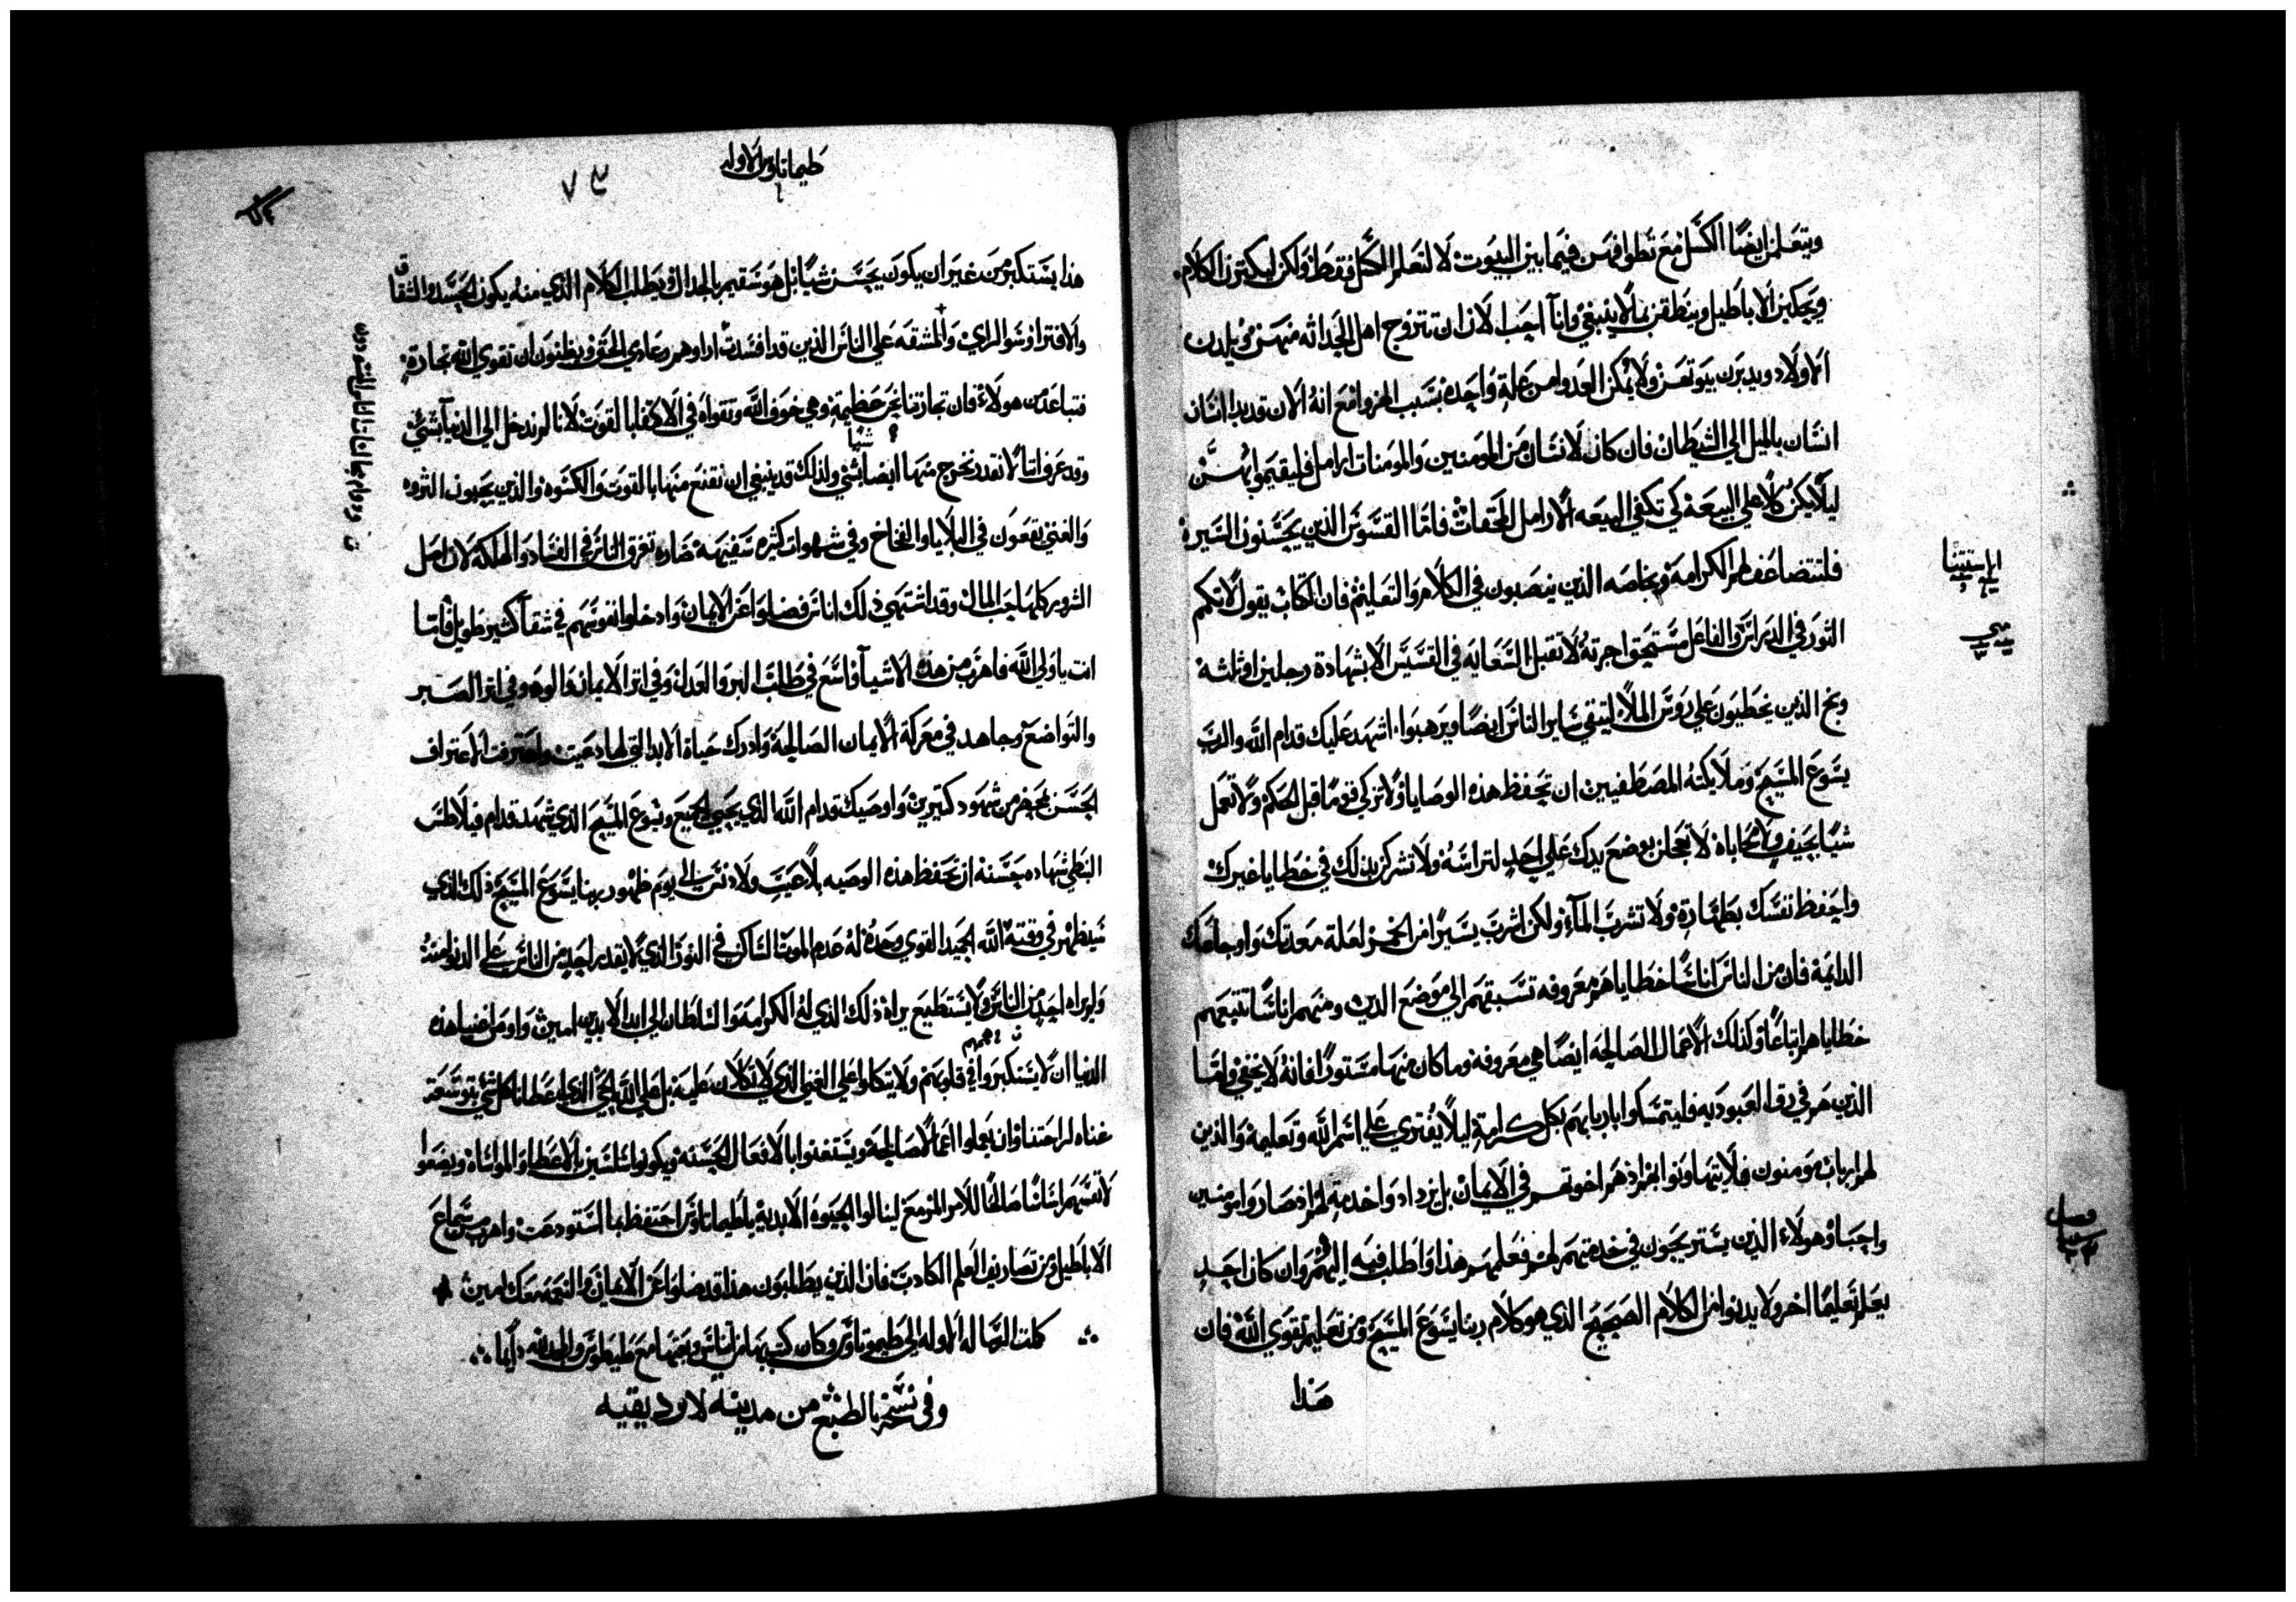 ويتعلمن ايضًا الكسل مع تطوافهن فيما بين البيوت لا لتعلم الكسل فقط ولكن ليكثرن الكلام.
ويحكين الاباطيل وينطقن بما لا ينبغي وانا احب الان ان تتزوج اهل الحداثه منهن ويلدن
الاولاد ويدبرن بيوتهن ولا يمكن العدوا من علة واحده بسبب الهزوا مع انه الان قد بدا انسان
انسان بالميل الي الشيطان فان كان لانسان من المومنين والمومنات ارامل فليقيموا بهن
ليلا يكن كلًا علي البيعة كي تكفي البيعه الارامل المحقات فاما القسوس الذين يحسنون السيرة
فلتتضاعف لهم الكرامه وبخاصه الذين ينصبون في الكلام والتعليم فان الكتاب يقول لا تكم
الثور في الدراس والفاعل مستحق اجرته لا تقبل السعايه في القسيس الا بشهادة رجلين او ثلثة
وبخ الذين يخطيون علي روس الملا ليتقي ساير الناس ايضا ويرهبوا، اشهد عليك قدام الله والرب
يسوع المسيح وملايكته المصطفيين ان تحفظ هذه الوصايا ولا تزكي قومًا قبل الحكم ولا تعمل
شيا بحيف ولا محاباة لا تعجلن بوضع يدك علي احد لتراسه ولا تشركن بذلك في خطايا غيرك
واحفظ نفسك بطهارة ولا تشرب الماء ولكن اشرب يسيرًا من الخمر لعلة معدتك واوجاعك
الدايمة فان من الناس اناسًا خطاياهم معروفه تسبقهم الي موضع الدين ومنهم اناسًا تتبعهم
خطاياهم اتباعًا وكذلك الاعمال الصالحه ايضًا هي معروفه وما كان منها مستورًا فانه لا يخفي واما
الذين هم في رق العبوديه فليتمسكوا باربابهم بكل كرامة ليلا يفتري علي اسم الله وتعليمه والذين
لهم ارباب مومنون فلا يتهاونوا بهم اذ هم اخوتهم في الايمان بل يزداد واخدمة لهم اذ صاروا مومنين
واحبا وهولاء الذين يستريحون في خدمتهم لهم فعلمهم هذا واطلب فيه اليهم وان كان احد
يعلم تعليمًا اخر ولا يدنوا من الكلام الصحيح الذي هو كلام ربنا يسوع المسيح ومن تعليم تقوي الله فان
هذا
الاستثنا
متي
فصل
طيماتاوس الاوله
٧٣
هذا يستكبر من غير ان يكون يحسن شيا بل هو سقيم بالجدال ويطلب الكلام الذي منه يكون الحسد والشقاق
والافترا وسو الراي والمشقه علي الناس الذين قد افسدت اراوهم وعادي الحق ويظنون ان تقوي الله تجارة
فتباعد من هولاء فان تجارتنا نحن عظيمة وهي خوف الله وتقواه في الاكتفا بالقوت لانا لم ندخل الي الدنيا بشي
شيًا
وقد عرفنا انا لا نقدر نخرج منها ايضا بشي ولذلك قد ينبغي ان نقنع منها بالقوت والكسوه والذين يحبون الثروه
والغني يقعون في البلايا والفخاخ وفي شهوات كثيره سفيهة ضاره تغرق الناس في الفساد والهلكه لان اصل
الشرور كلها حب المال وقد اشتهي ذلك اناس فضلوا عن الايمان وادخلوا نفوسهم في شقا كثير طويل فاما
انت يا ولي الله فاهرب من هذه الاشيا واسع في طلب البر والعدل وفي اثر الايمان والود وفي اثر الصبر
والتواضع وجاهد في معركة الايمان الصالحة وادرك حياة الابد التي لها دعيت واعترفت الاعتراف
الحسن بمحضر من شهود كثيرين واوصيك قدام الله الذي يحيي الجميع ويسوع المسيح الذي شهد قدام فيلاطس
البنطي شهاده حسنه ان تحفظ هذه الوصيه بلا عيب ولا دنس الي يوم ظهور ربنا يسوع المسيح ذلك الذي
سيظهر في وقته الله الحميد القوي وحده له عدم الموت الساكن في النور الذي لا يقدر احد من الناس علي الدنو منه
ولم يراه احد من الناس ولا يستطيع يراه ذلك الذي له الكرامه والسلطان الي ابد الابدين امين واوص اغنيا هذه
الدنيا ان لا يستكبروا في قلوبهم ولا يتكلوا علي الغني الذي لا تكلان عليه بل علي الله الحي الذي اعطانا كل شي بتوسعة
غناه لراحتنا وان يعملوا اعمالا صالحة ويستغنوا بالافعال الحسنه ويكونوا سلسين بالاعطا والمواساة ويضعوا
لانفسهم اساسًا صالحًا للامر المزمع لينالوا الحيوه الابدية يا طيماتاوس احتفظ بما استودعت واهرب من سماع
الاباطيل ومن تصاريف العلم الكاذب فان الذين يطلبون هذا قد ضلوا عن الايمان والنعمه معك امين
كملت الرساله الاوله الي طيموتاوس وكان كتب بها من اثيناس وبعثها مع طيطوس والحمد لله دايما
وفي نسخه بالطبع من مدينه لاوديقيه